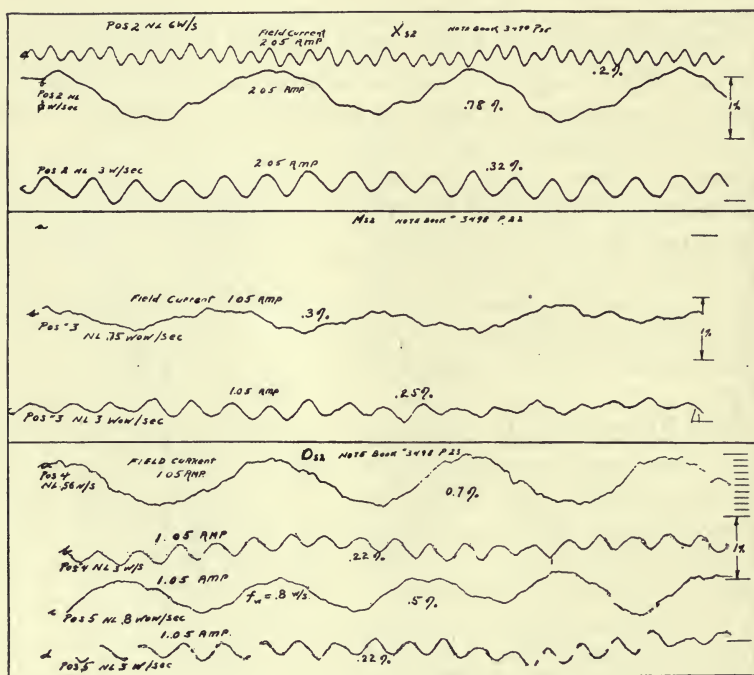 POS 2 NL 6 W/S
Field Current
2.05 AMP
X S2
NOTE BOOK 3498 P25
a
.2%
b
POS 2 NL
W/sec
2.05 AMP
.78%
1%
c
POS 2 NL 3 W/sec
2.05 AMP
.32%
a
M S2 NOTE BOOK # 3498 P.23
Field Current 1.05 AMP
b
POS #3
NL .75 WOW/sec
.3%
1%
1.05 AMP
.25%
POS #3 NL 3 WOW/sec
D S2 NOTE BOOK # 3498 P23
a
POS 4
NL .56 W/S
FIELD CURRENT
1.05 AMP.
0.7%
1.05 AMP
b
POS 4 NL 3 W/S
.22%
1%
1.05 AMP
fw = .8 W/S.
.5%
c
POS 5 NL .8 WOW/sec
1.05 AMP.
d
POS 5 NL 3 W/sec
.22%